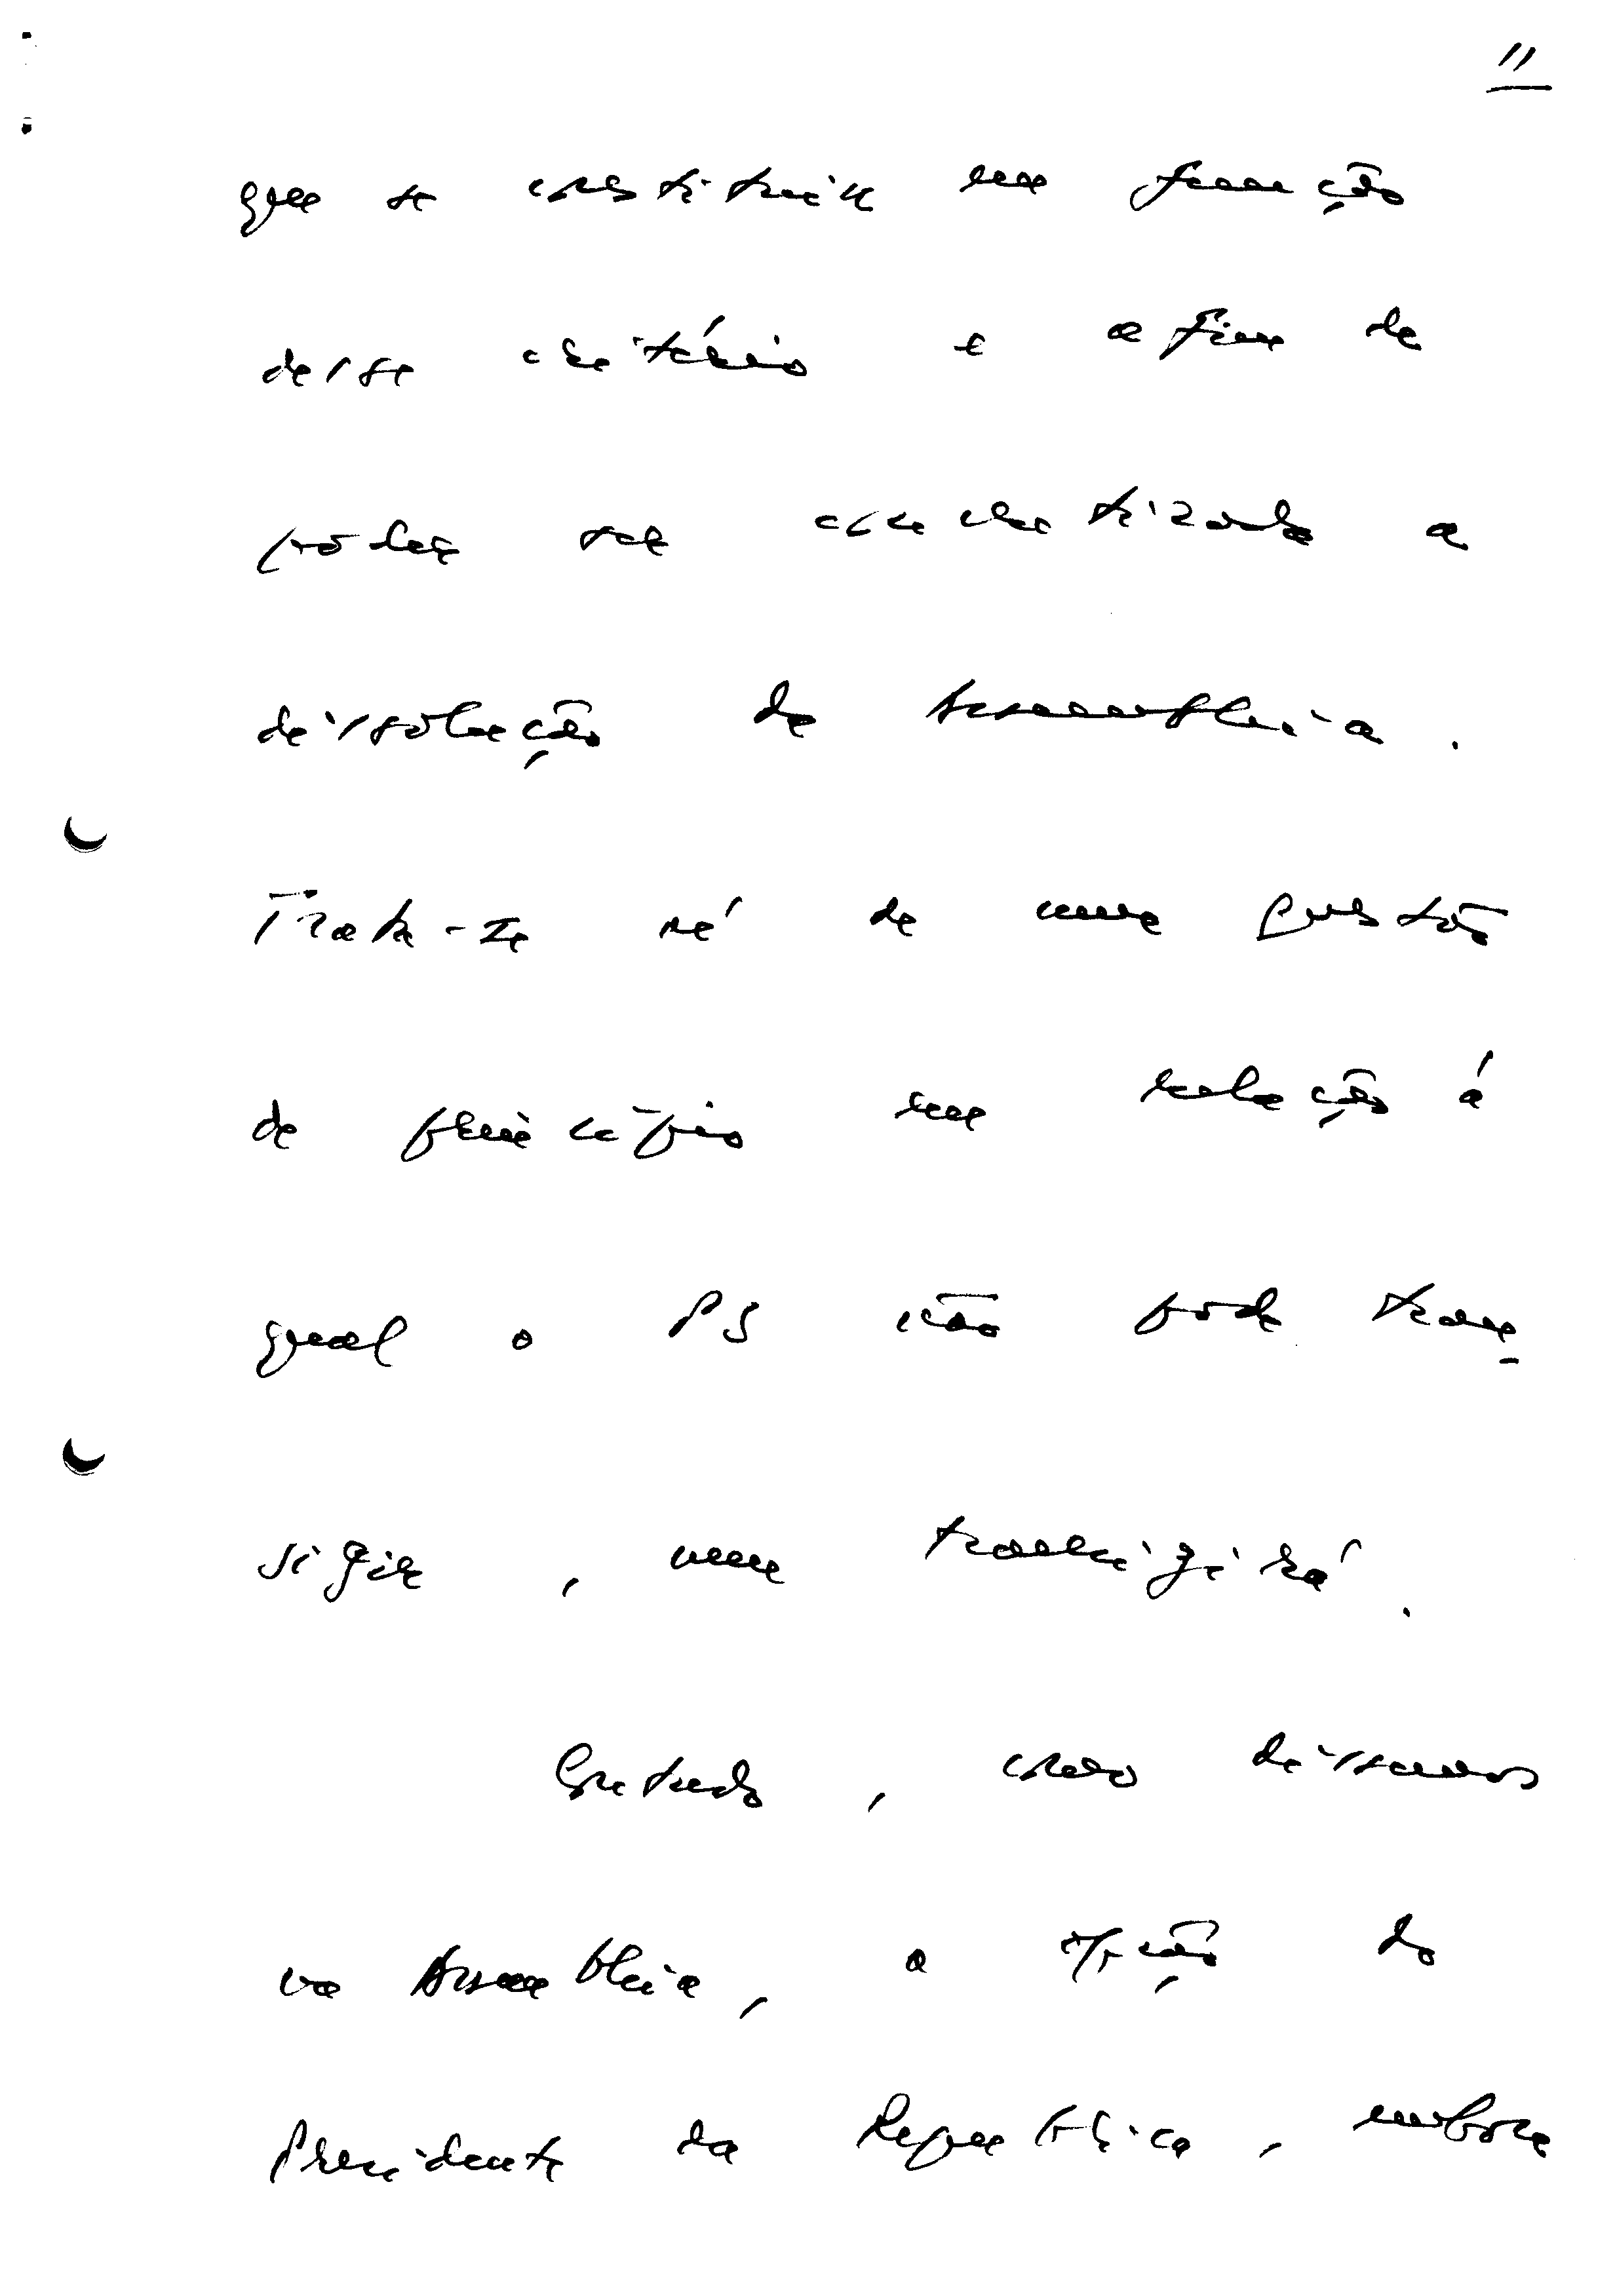 11
que se constituiu em função
desse critério e a fim de
poder ser concretizada a
dissolução da Assembleia.
Trata-se né de uma questão
de princípio em relação à
qual o PS não pode tran-
sigir, nem transigirá.
Contudo, como dissemos
na Assembleia, a opção do
Presidente da República, embora